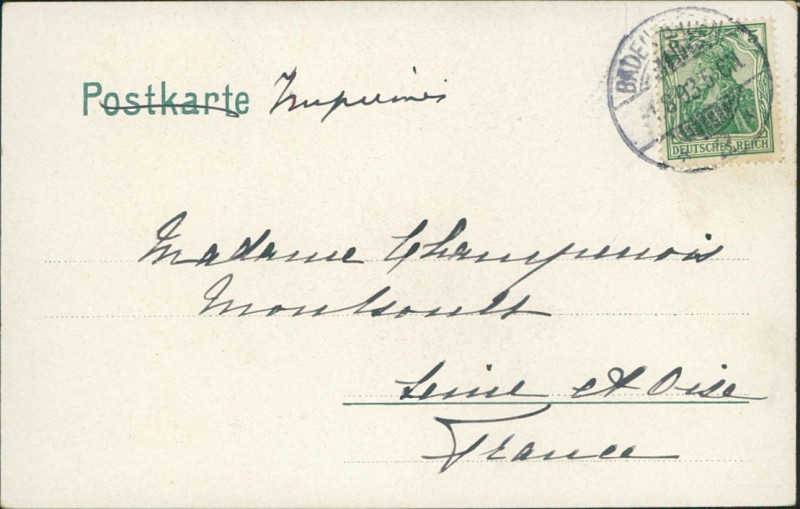 Postkarte Imprimés
BADEN-BADEN
DEUTSCHES REICH
Madame Champenois
Montsoult
Seine et Oise
France